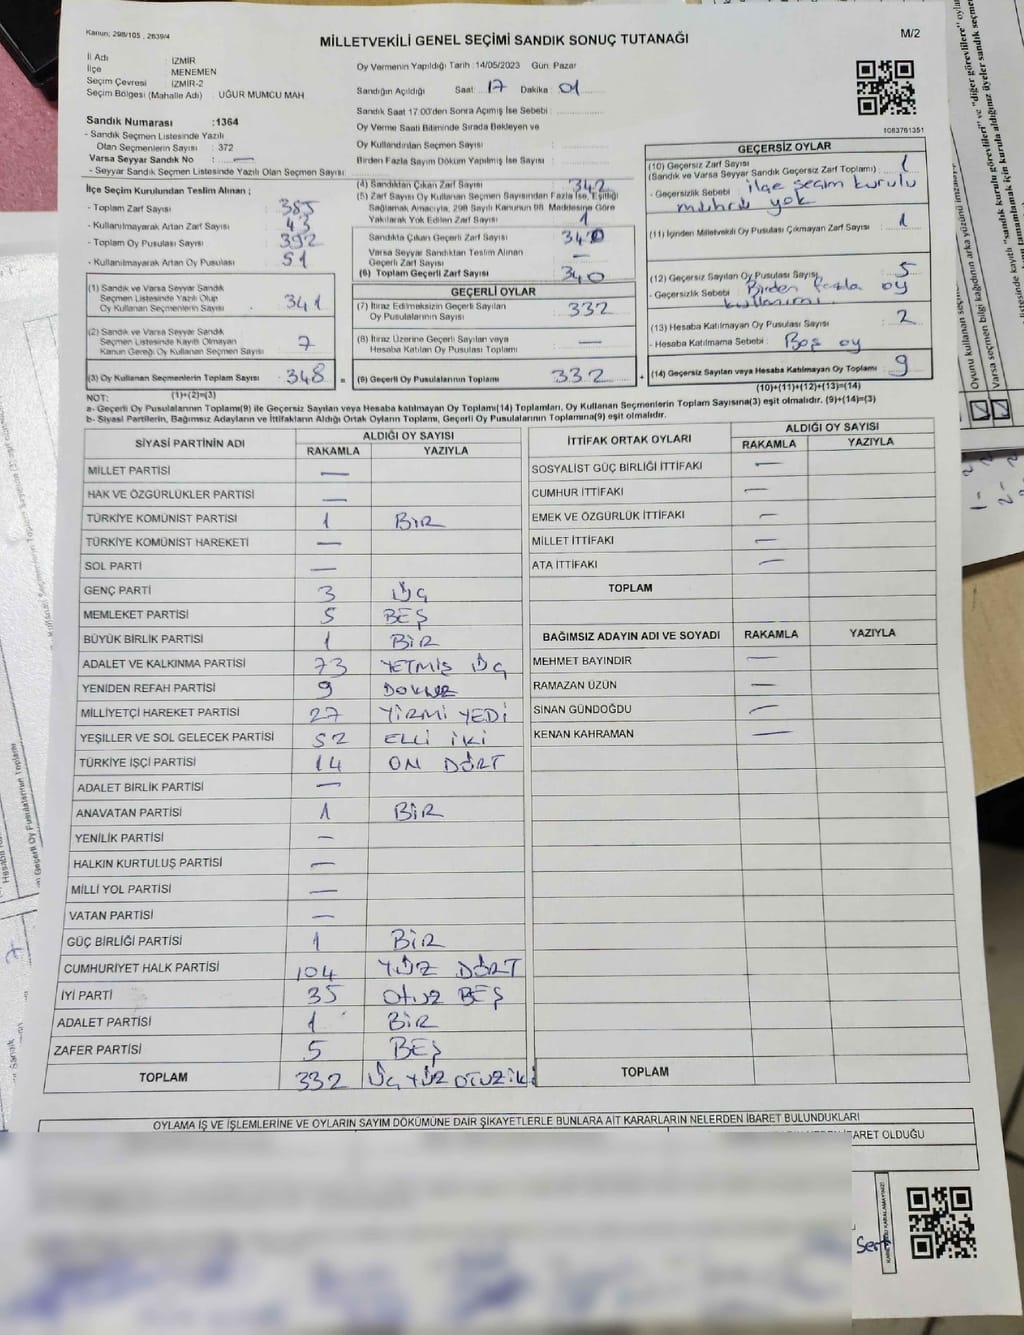 Kanun; 298/105 , 2839/4
M/2
MİLLETVEKİLİ GENEL SEÇİMİ SANDIK SONUÇ TUTANAĞI
İl Adı : İZMİR
İlçe MENEMEN
Seçim Çevresi : İZMİR-2
Seçim Bölgesi (Mahalle Adı) : UĞUR MUMCU MAH
Sandık Numarası :1364
- Sandık Seçmen Listesinde Yazılı
Olan Seçmenlerin Sayısı : 372
Varsa Seyyar Sandık No : —
- Seyyar Sandık Seçmen Listesinde Yazılı Olan Seçmen Sayısı:
Oy Vermenin Yapıldığı Tarih : 14/05/2023 Gün: Pazar
Sandığın Açıldığı Saat: 17 Dakika 01
Sandık Saat 17.00'den Sonra Açımış İse Sebebi :
Oy Verme Saati Bitiminde Sırada Bekleyen ve
Oy Kullandırılan Seçmen Sayısı :
Birden Fazla Sayım Döküm Yapılmış İse Sayısı :
1083761351
İlçe Seçim Kurulundan Teslim Alınan ;
- Toplam Zarf Sayısı : 385
- Kullanılmayarak Artan Zarf Sayısı : 43
- Toplam Oy Pusulası Sayısı : 392
- Kullanılmayarak Artan Oy Pusulası : 51
(1) Sandık ve Varsa Seyyar Sandık
Seçmen Listesinde Yazılı Olup
Oy Kullanan Seçmenlerin Sayısı : 341
(2) Sandık ve Varsa Seyyar Sandık
Seçmen Listesinde Kayıtlı Olmayan
Kanun Gereği Oy Kullanan Seçmen Sayısı : 7
(3) Oy Kullanan Seçmenlerin Toplam Sayısı : 348 =
(1)+(2)=(3)
(4) Sandıktan Çıkan Zarf Sayısı : 342
(5) Zarf Sayısı Oy Kullanan Seçmen Sayısından Fazla İse, Eşitliği
Sağlamak Amacıyla, 298 Sayılı Kanunun 98. Maddesine Göre
Yakılarak Yok Edilen Zarf Sayısı : 1
Sandıkta Çıkan Geçerli Zarf Sayısı : 340
Varsa Seyyar Sandıktan Teslim Alınan
Geçerli Zarf Sayısı : —
(6) Toplam Geçerli Zarf Sayısı : 340
GEÇERLİ OYLAR
(7) İtiraz Edilmeksizin Geçerli Sayılan
Oy Pusulalarının Sayısı : 332
(8) İtiraz Üzerine Geçerli Sayılan veya
Hesaba Katılan Oy Pusulası Toplamı : —
(9) Geçerli Oy Pusulalarının Toplamı : 332 +
GEÇERSİZ OYLAR
(10) Geçersiz Zarf Sayısı : 1
(Sandık ve Varsa Seyyar Sandık Geçersiz Zarf Toplamı)
- Geçersizlik Sebebi : ilçe seçim kurulu
mührü yok
(11) İçinden Milletvekili Oy Pusulası Çıkmayan Zarf Sayısı : 1
(12) Geçersiz Sayılan Oy Pusulası Sayısı : 5
- Geçersizlik Sebebi : Birden fazla oy
kullanımı.
(13) Hesaba Katılmayan Oy Pusulası Sayısı : 2
- Hesaba Katılmama Sebebi : Boş oy
(14) Geçersiz Sayılan veya Hesaba Katılmayan Oy Toplamı : 9
(10)+(11)+(12)+(13)=(14)
NOT:
a- Geçerli Oy Pusulalarının Toplamı(9) ile Geçersiz Sayılan veya Hesaba katılmayan Oy Toplam(14) Toplamları, Oy Kullanan Seçmenlerin Toplam Sayısına(3) eşit olmalıdır. (9)+(14)=(3)
b- Siyasi Partilerin, Bağımsız Adayların ve İttifakların Aldığı Ortak Oyların Toplamı, Geçerli Oy Pusulalarının Toplamına(9) eşit olmalıdır.
SİYASİ PARTİNİN ADI ALDIĞI OY SAYISI
RAKAMLA YAZIYLA
MİLLET PARTİSİ —
HAK VE ÖZGÜRLÜKLER PARTİSİ —
TÜRKİYE KOMÜNİST PARTİSİ 1 BİR
TÜRKİYE KOMÜNİST HAREKETİ —
SOL PARTİ —
GENÇ PARTİ 3 ÜÇ
MEMLEKET PARTİSİ 5 BEŞ
BÜYÜK BİRLİK PARTİSİ 1 BİR
ADALET VE KALKINMA PARTİSİ 73 YETMİŞ ÜÇ
YENİDEN REFAH PARTİSİ 9 DOKUZ
MİLLİYETÇİ HAREKET PARTİSİ 27 YİRMİ YEDİ
YEŞİLLER VE SOL GELECEK PARTİSİ 52 ELLİ İKİ
TÜRKİYE İŞÇİ PARTİSİ 14 ON DÖRT
ADALET BİRLİK PARTİSİ —
ANAVATAN PARTİSİ 1 BİR
YENİLİK PARTİSİ —
HALKIN KURTULUŞ PARTİSİ —
MİLLİ YOL PARTİSİ —
VATAN PARTİSİ —
GÜÇ BİRLİĞİ PARTİSİ 1 BİR
CUMHURİYET HALK PARTİSİ 104 YÜZ DÖRT
İYİ PARTİ 35 OTUZ BEŞ
ADALET PARTİSİ 1 BİR
ZAFER PARTİSİ 5 BEŞ
TOPLAM 332 ÜÇ YÜZ OTUZ İKİ
İTTİFAK ORTAK OYLARI ALDIĞI OY SAYISI
RAKAMLA YAZIYLA
SOSYALİST GÜÇ BİRLİĞİ İTTİFAKI —
CUMHUR İTTİFAKI —
EMEK VE ÖZGÜRLÜK İTTİFAKI —
MİLLET İTTİFAKI —
ATA İTTİFAKI —
TOPLAM
BAĞIMSIZ ADAYIN ADI VE SOYADI RAKAMLA YAZIYLA
MEHMET BAYINDIR —
RAMAZAN ÜZÜN —
SİNAN GÜNDOĞDU —
KENAN KAHRAMAN —
TOPLAM
OYLAMA İŞ VE İŞLEMLERİNE VE OYLARIN SAYIM DÖKÜMÜNE DAİR ŞİKAYETLERLE BUNLARA AİT KARARLARIN NELERDEN İBARET BULUNDUKLARI
İBARET OLDUĞU